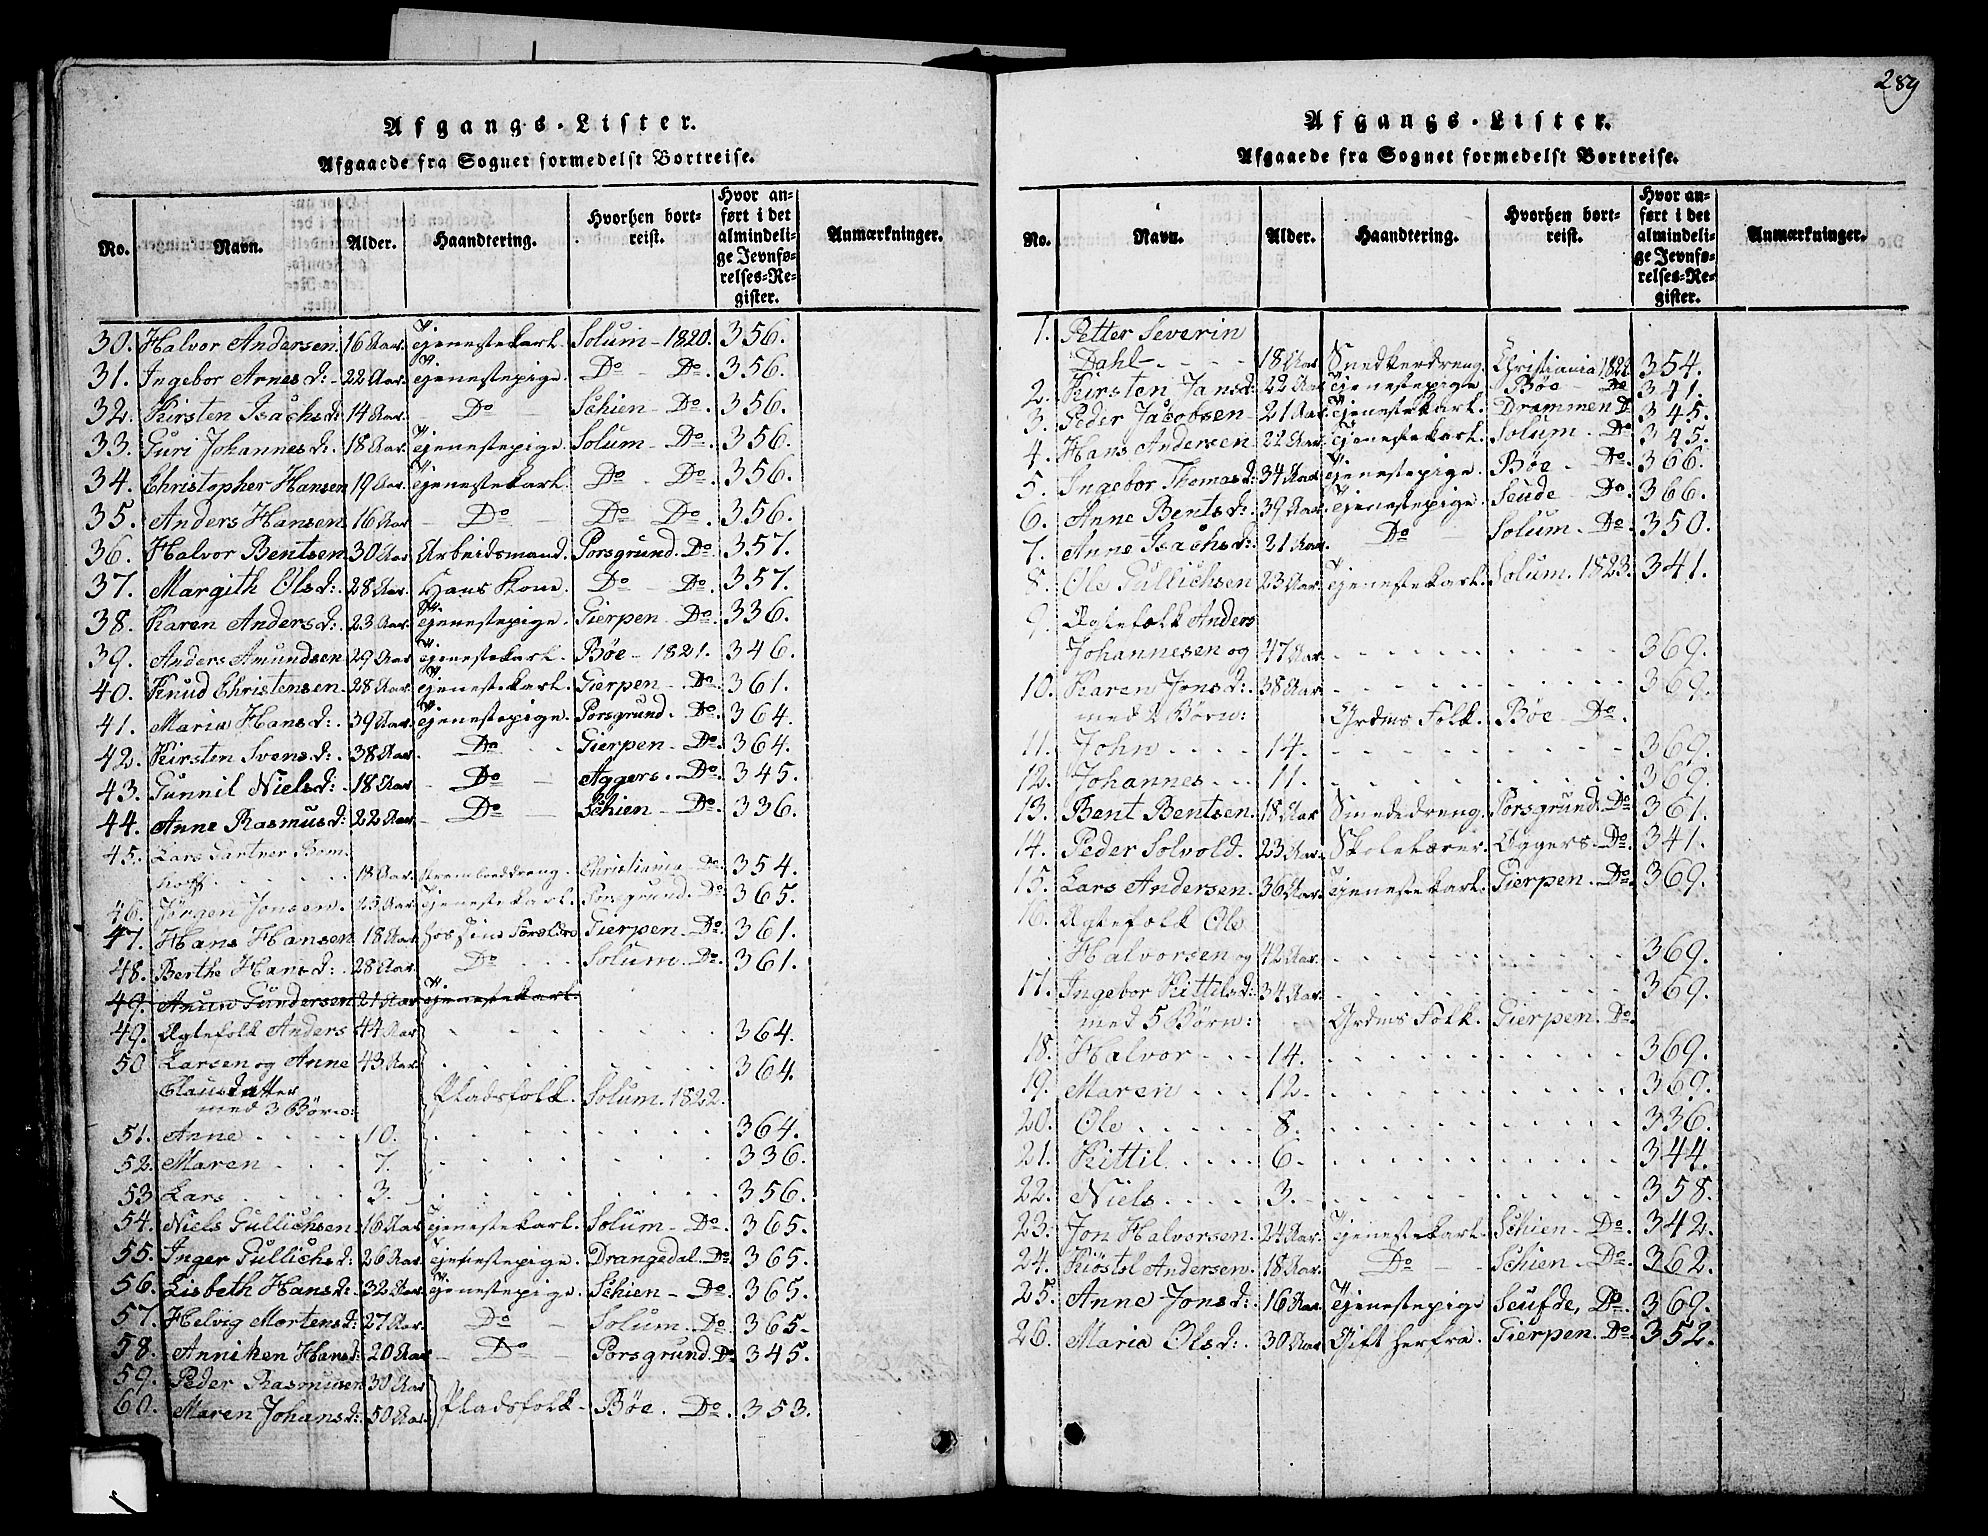 Afgangs-Lister.
Afgaaede fra Sognet formedelst Bortreise.
No. Navn. Alder. Haandtering. Hvorhen bortreist. Hvor anført i det almindelige Jevnførelses-Register. Anmærkninger.
30. Halvor Andersen. 16 Aar. Tjenestekarl. Solum - 1820. 356.
31. Ingebor Arnesd: - 22 Aar. Tjenestepige. Do - Do. 356.
32. Kirsten Isachsd: 14 Aar. - Do - Schien - Do. 356.
33. Guri Johannesd: 18 Aar. Tjenestepige. Solum - Do. 356.
34. Christopher Hansen 19 Aar. Tjenestekarl. Do - Do. 356.
35. Anders Hansen 16 Aar - Do - Do Do. 356.
36. Halvor Bentsen 30 Aar Arbeidsmand. Porsgrund. Do. 357.
37. Margith Olsd: 28 Aar. Hans Kone. Do - Do. 357.
38. Karen Andersd: 23 Aar. Tjenestepige. Gierpen - Do. 336.
39. Anders Amundsen 29 Aar Tjenestekarl. Bøe - 1821. 346.
40. Knud Christensen. 28 Aar. Tjenestekarl. Gierpen - Do. 361.
41. Maria Hansd: 39 Aar. Tjenestepige. Porsgrund. Do. 364.
42. Kirsten Svensd: 38 Aar. Do Gierpen - Do. 364.
43. Gunnil Nielsd: 18 Aar - Do - Aggers. Do. 345.
44. Anne Rasmusd: 22 Aar - Do - Schien - Do. 336.
45. Lars Gartner Bom-
hoff. 18 Aar. Christiania - Do. 354.
46. Jørgen Jonsen. 25 Aar Tjenestekarl. Porsgrund. Do. 365.
47. Hans Hansen 18 Aar hos sine Forældre Gierpen. Do. 361.
48. Berthe Hansd: 28 Aar. Do Solum. Do. 361.
49. Gundersen 21 Aar Tjenestekarl.
49. Ægtefolk Anders 44 Aar 364.
50 Larsen og Anne 43 Aar 364.
Clausdatter Pladsfolk. Solum. 1822.
med 3 Børn:
51. Anne 10. 364.
52. Maren 7. 336.
53 Lars 3. 356.
54. Niels Gullichsen. 16 Aar Tjenestekarl. Solum - Do. 365.
55. Inger Gullichsd: 26 Aar. Tjenestepige. Drangedal. Do. 365.
56. Lisbeth Hansd: 32 Aar. Tjenestepige. Schien - Do. 365.
57. Helvig Mortensd: 27 Aar. Do - Solum. Do. 365.
58. Anniken Hansd: 20 Aar - Do - Porsgrund. Do. 345.
59. Peder Rasmusen 30 Aar
60. Maren Johansd: 50 Aar. Pladsfolk - Bøe. Do. 353.
289
Afgangs-Lister.
Afgaaede fra Sognet formedelst Bortreise.
No. Navn. Alder. Haandtering. Hvorhen bortreist. Hvor anført i det almindelige Jevnførelses-Register. Anmærkninger.
1. Petter Severin
Dahl - 18 Aar Snedkerdreng. Christiania 1822 354.
2. Kirsten Jansd: 22 Aar Tjenestepige. Bøe - Do 341.
3. Peder Jacobsen - 21 Aar. Tjenestekarl. Drammen Do 345.
4. Hans Andersen 22 Aar. Tjenestekarl. Solum - Do 345.
5. Ingebor Thomasd: 34 Aar. Tjenestepige. Bøe - Do. 366.
6. Anne Bentsd: 39 Aar. Tjenestepige. Seude - Do. 366.
7. Anne Isachsd: 21 Aar. Do Solum. Do. 350.
8. Ole Gullichsen 23 Aar. Tjenestekarl. Solum. 1823. 341.
9. Ægtefolk Anders
Johannesen og 47 Aar. 369.
10. Karen Jonsd: 38 Aar. 369.
med 2 Børn: Grdms Folk. Bøe - Do.
11. John 14. 369.
12. Johannes 11. 369.
13. Bent Bentsen. 18 Aar Smededreng. Porsgrund. Do. 361.
14. Peder Solvold. 23 Aar. Skolelærer. Aggers. Do. 341.
15. Lars Andersen. 36 Aar. Tjenestekarl. Gierpen. Do. 369.
16. Ægtefolk Ole
Halvorsen og 42 Aar. 369.
17. Ingebor Kittilsd: 34 Aar. 369.
med 5 Børn: Grdms Folk. Gierpen. Do.
18. Halvor 14. 369.
19. Maren 12. 369.
20. Ole 8. 336.
21. Kittil 6. 344.
22. Niels 3. 358.
23. Jon Halvorsen. 24 Aar. Tjenestekarl. Schien - Do. 342.
24. Kiøstel Andersen. 18 Aar. Do - Schien. Do. 362.
25. Anne Jonsd: 16 Aar. Tjenestepige Seufde, Do. 369.
26. Maria Olsd: 30 Aar Gift herfra. Gierpen. Do. 352.